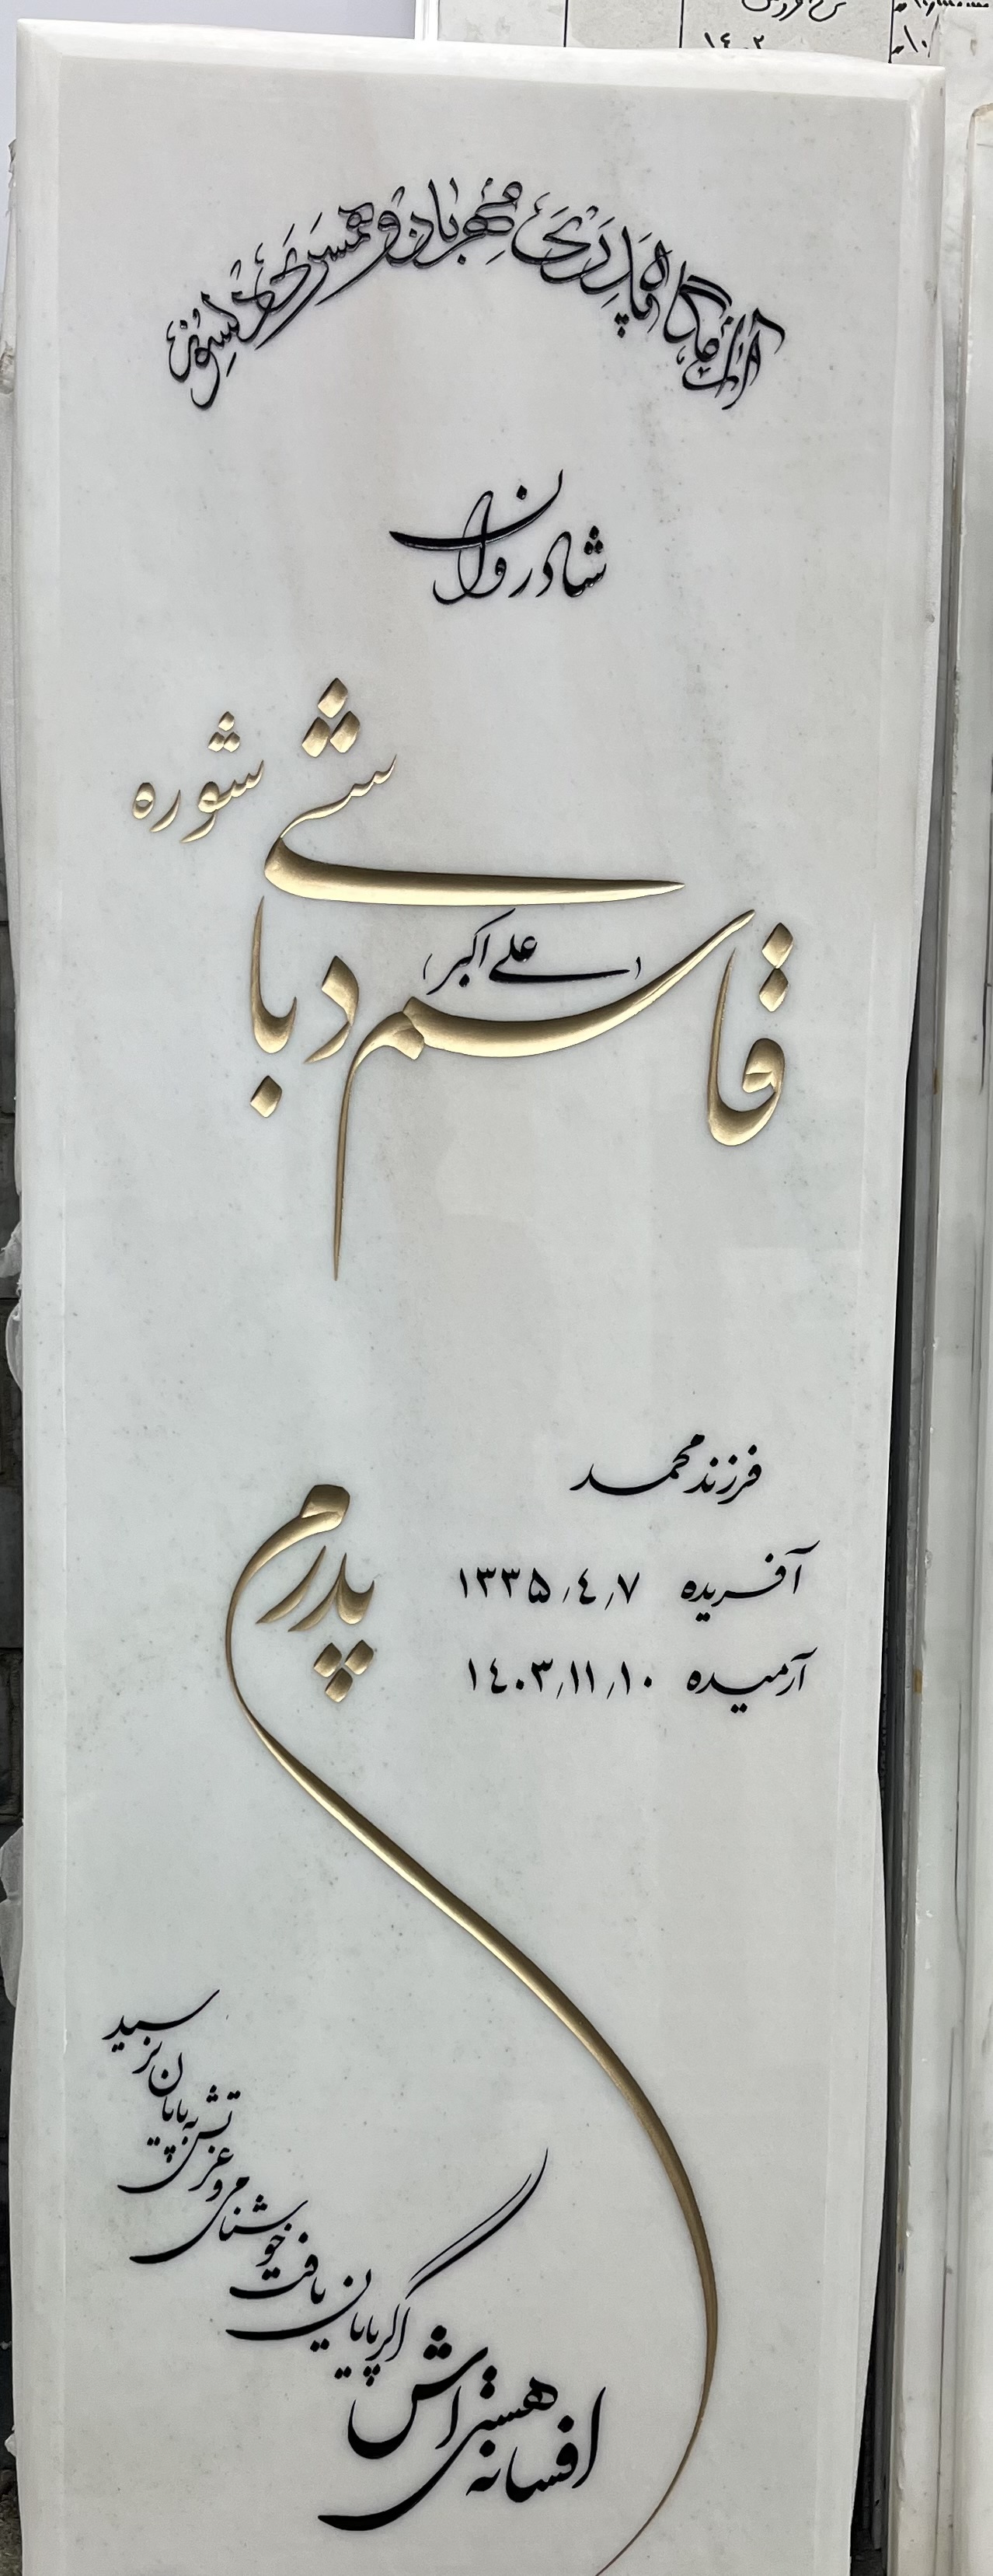 آرامگاه پدری مهربان و همسری دلسوز
شادروان
قاسم دباشی شوره
(علی اکبر)
فرزند محمد
آفریده ۱۳۳۵/۴/۷
آرمیده ۱۴۰۳/۱۱/۱۰
پدرم
افسانه هستی اش
اگر پایان یافت
خوشنامی و عزتش به پایان نرسید
۱۴۰۲
۱۰/